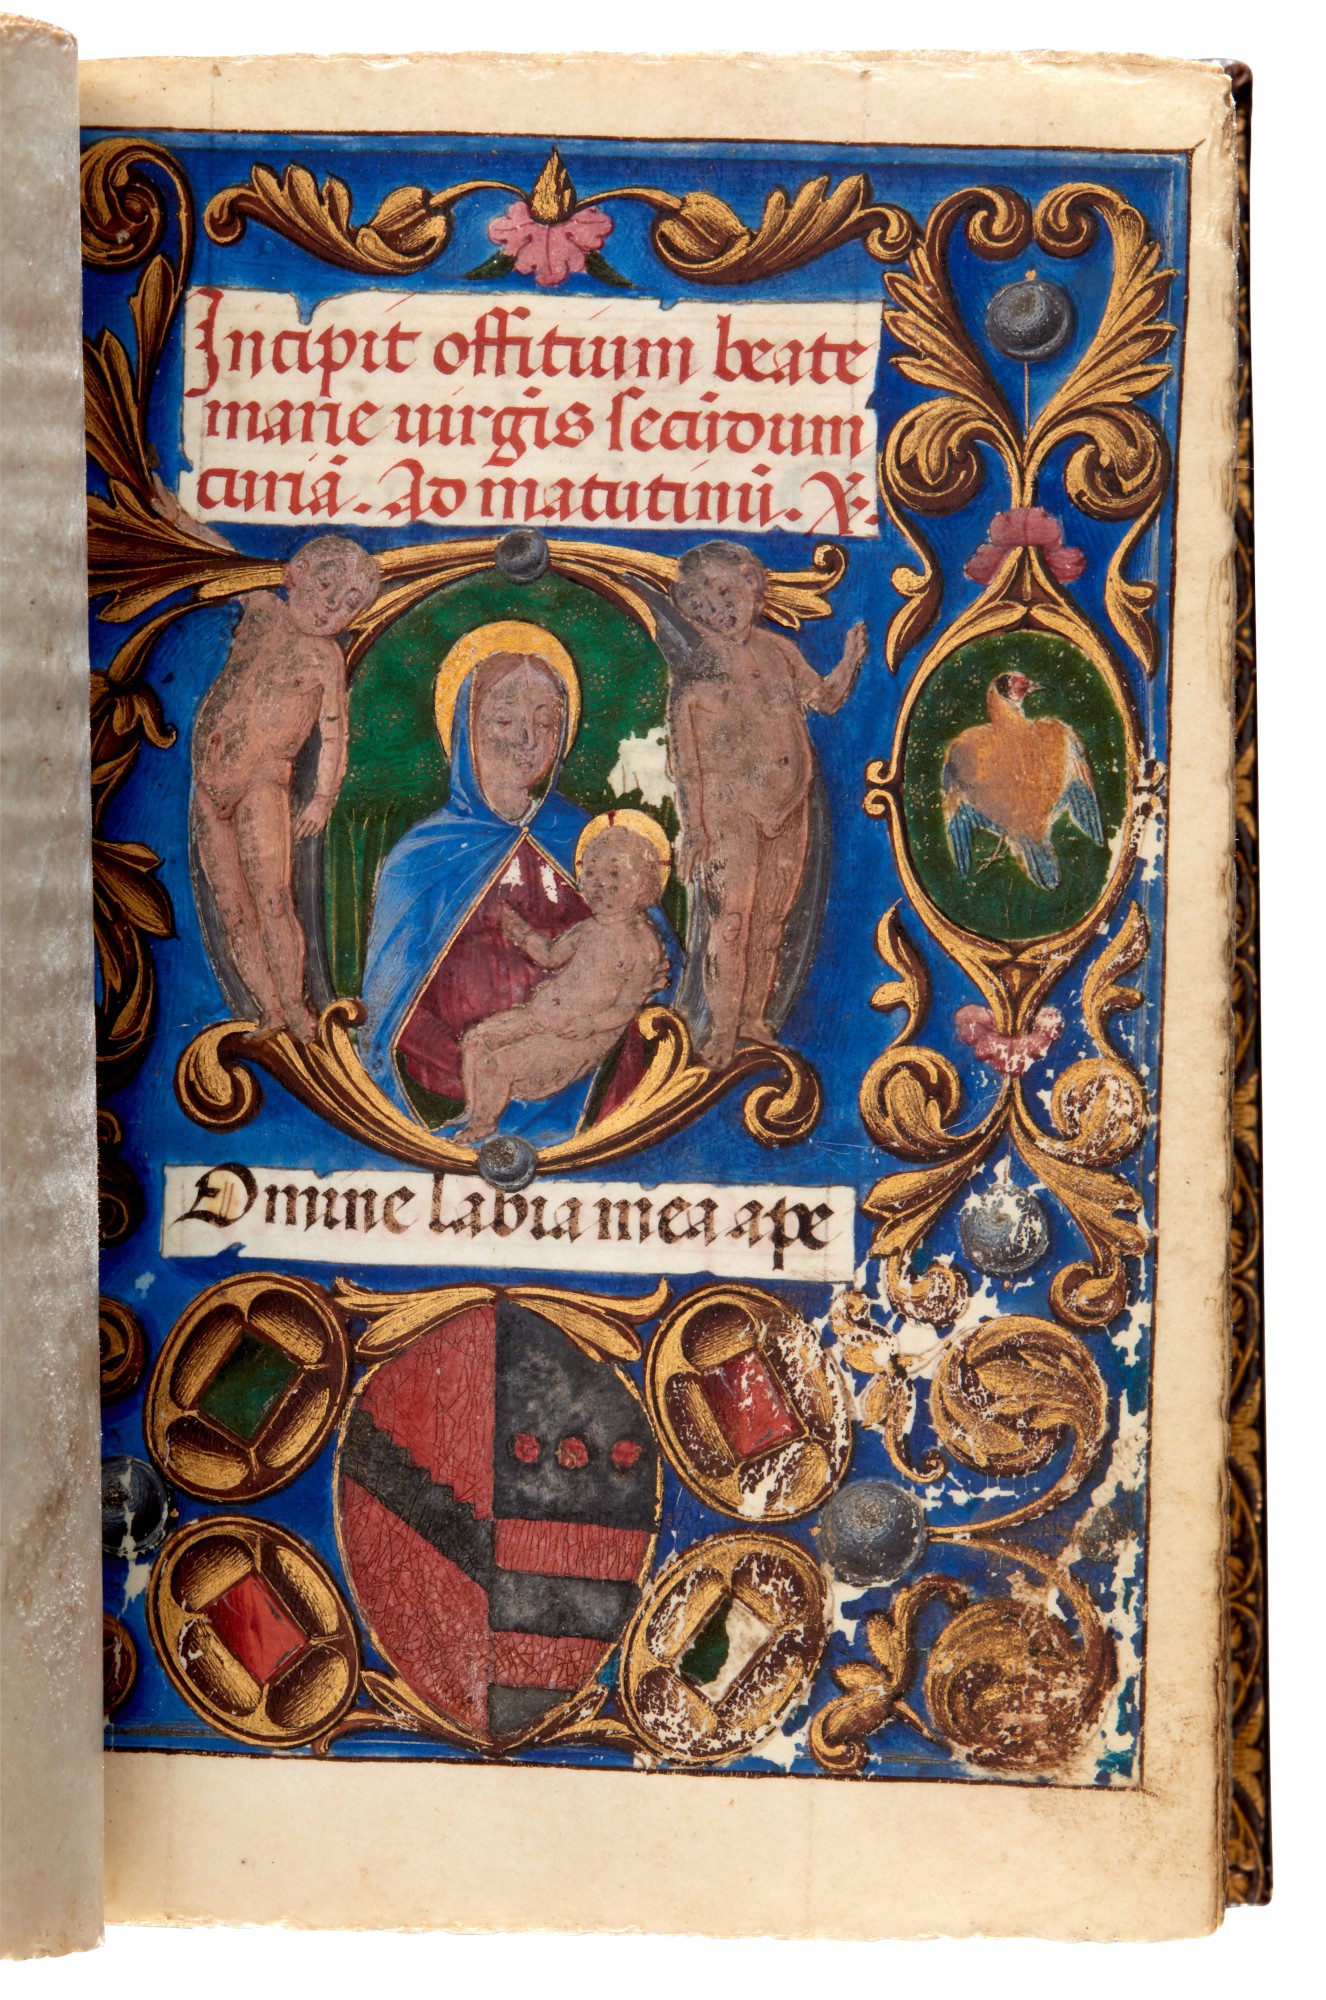 Incipit offitium beate
marie uirgis secūdum
curiā. Ad matutinū. ℣.
Domine labia mea ape